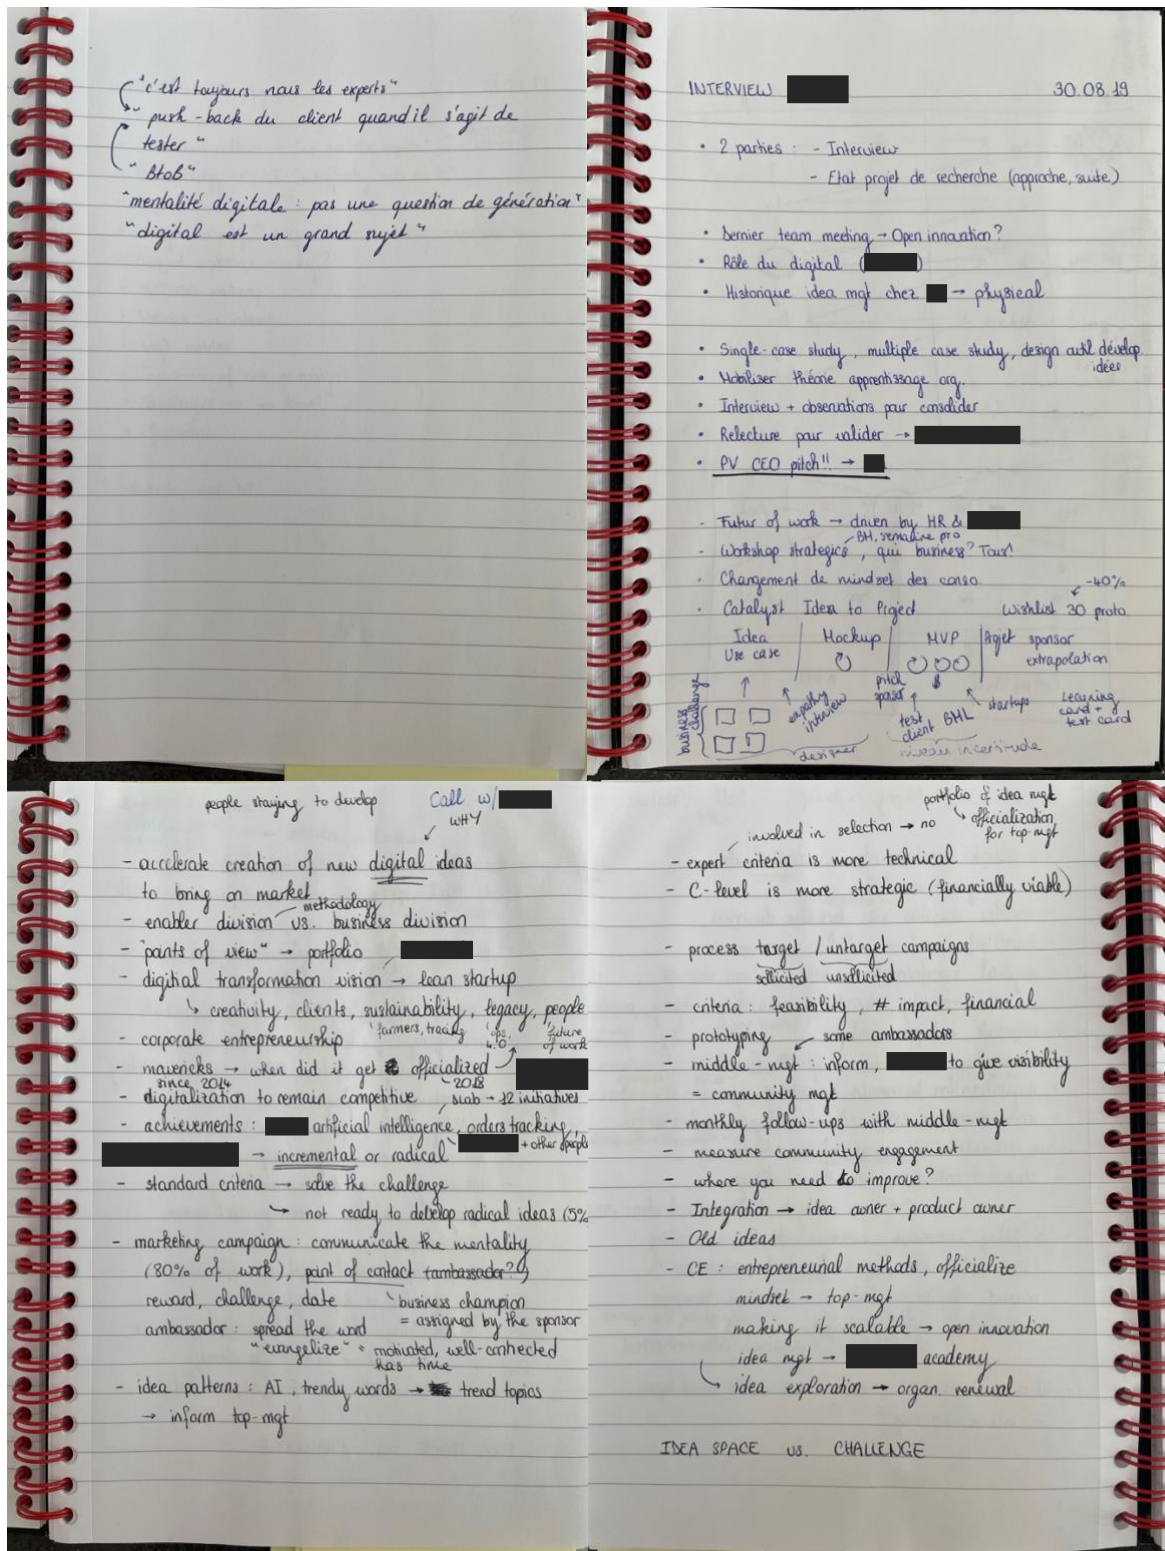 "c'est toujours nous les experts"
"push-back du client quand il s'agit de
tester"
"BtoB"
"mentalité digitale : pas une question de génération"
"digital est un grand sujet"
INTERVIEW 30.08.19
• 2 parties : - Interview
- Etat projet de recherche (approche, suite)
• Dernier team meeting → Open innovation?
• Rôle du digital ( )
• Historique idea mgt chez → physical
• Single-case study, multiple case study, design outil dévelop.
idées
• Mobiliser théorie apprentissage org.
• Interview + observations pour consolider
• Relecture pour valider →
• PV CEO pitch!! →
- Futur of work → driven by HR &
BH, semaine pro
- Workshop strategics, qui business? Tous!
- Changement de mindset des conso.
-40%
• Catalyst Idea to Project Wishlist 30 proto.
Idea Mockup MVP Projet sponsor
Use case extrapolation
business challenge
empathy interview
pitch sponsor
$
test client BHL
startups
Learning card + test card
designer
niveau incertitude
people staying to develop Call w/
WHY
- accelerate creation of new digital ideas
to bring on market
methodology
- enabler division vs. business division
- "points of view" → portfolio
- digitial transformation vision → lean startup
↳ creativity, clients, sustainability, legacy, people
farmers, tracing 'ops 4.0' 'future of work
- corporate entrepreneurship
- mavericks → when did it get officialized
since 2014 2018
- digitalization to remain competitive, slab → 12 initiatives
- achievements : artificial intelligence, orders tracking,
+ other people
→ incremental or radical
- standard criteria → solve the challenge
↳ not ready to develop radical ideas (5%
- marketing campaign : communicate the mentality
(80% of work), point of contact (ambassador?)
reward, challenge, date business champion
= assigned by the sponsor
ambassador : spread the word
"evangelize" = motivated, well-connected
has time
- idea patterns : AI, trendy words → trend topics
→ inform top-mgt
portfolio & idea mgt
involved in selection → no ↳ officialization
for top-mgt
- expert criteria is more technical
- C-level is more strategic (financially viable)
- process target / untarget campaigns
sollicited unsollicited
- criteria : feasibility, # impact, financial
- prototyping some ambassadors
- middle-mgt : inform, to give visibility
= community mgt
- monthly follow-ups with middle-mgt
- measure community engagement
- where you need to improve?
- Integration → idea owner + product owner
- Old ideas
- CE : entrepreneurial methods, officialize
mindset → top-mgt
making it scalable → open innovation
idea mgt → academy
↳ idea exploration → organ. renewal
IDEA SPACE vs. CHALLENGE